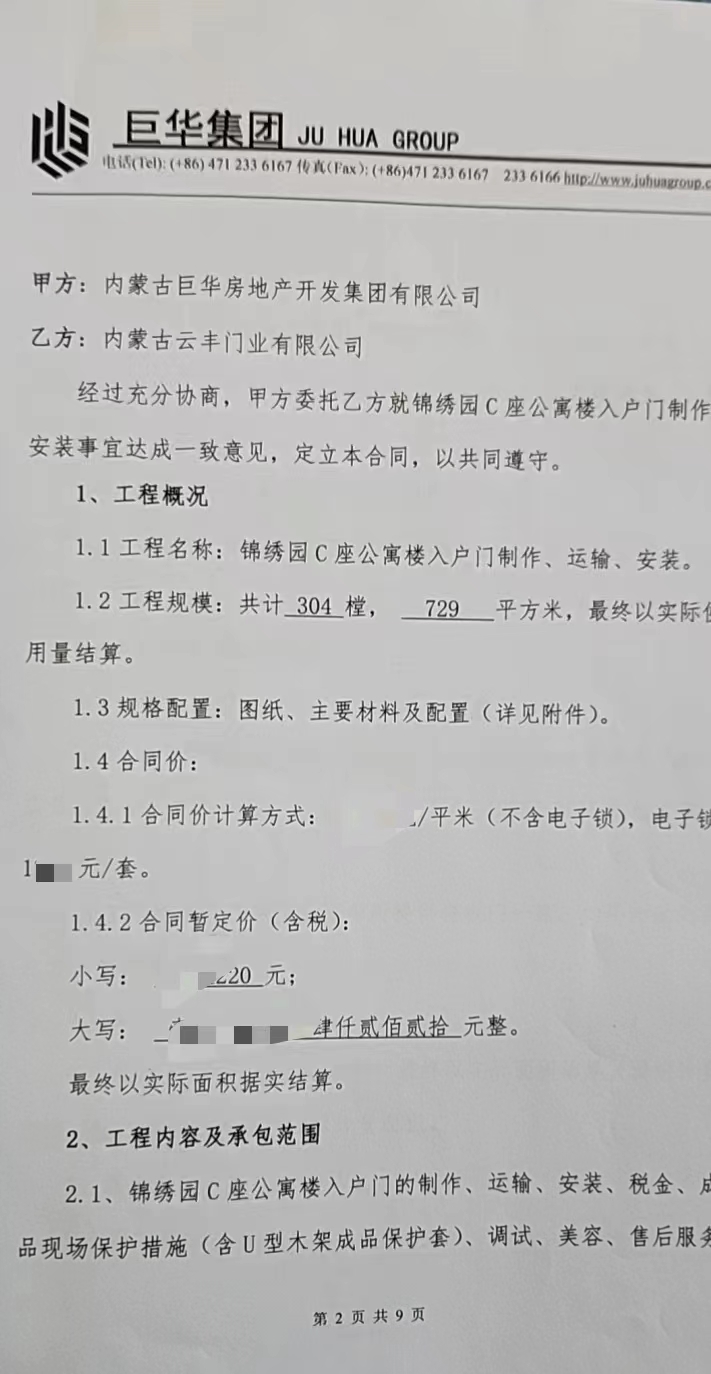 巨华集团 JU HUA GROUP
电话(Tel): (+86) 471 233 6167 传真(Fax): (+86)471 233 6167 233 6166 http://www.juhuagroup.c
甲方：内蒙古巨华房地产开发集团有限公司
乙方：内蒙古云丰门业有限公司
经过充分协商，甲方委托乙方就锦绣园C座公寓楼入户门制作
安装事宜达成一致意见，定立本合同，以共同遵守。
1、工程概况
1.1工程名称：锦绣园C座公寓楼入户门制作、运输、安装。
1.2工程规模：共计 304 樘， 729 平方米，最终以实际使
用量结算。
1.3规格配置：图纸、主要材料及配置（详见附件）。
1.4合同价：
1.4.1合同价计算方式： /平米（不含电子锁），电子锁
1 元/套。
1.4.2合同暂定价（含税）：
小写： 220 元；
大写： 肆仟贰佰贰拾 元整。
最终以实际面积据实结算。
2、工程内容及承包范围
2.1、锦绣园C座公寓楼入户门的制作、运输、安装、税金、成
品现场保护措施（含U型木架成品保护套）、调试、美容、售后服务
第 2 页 共 9 页